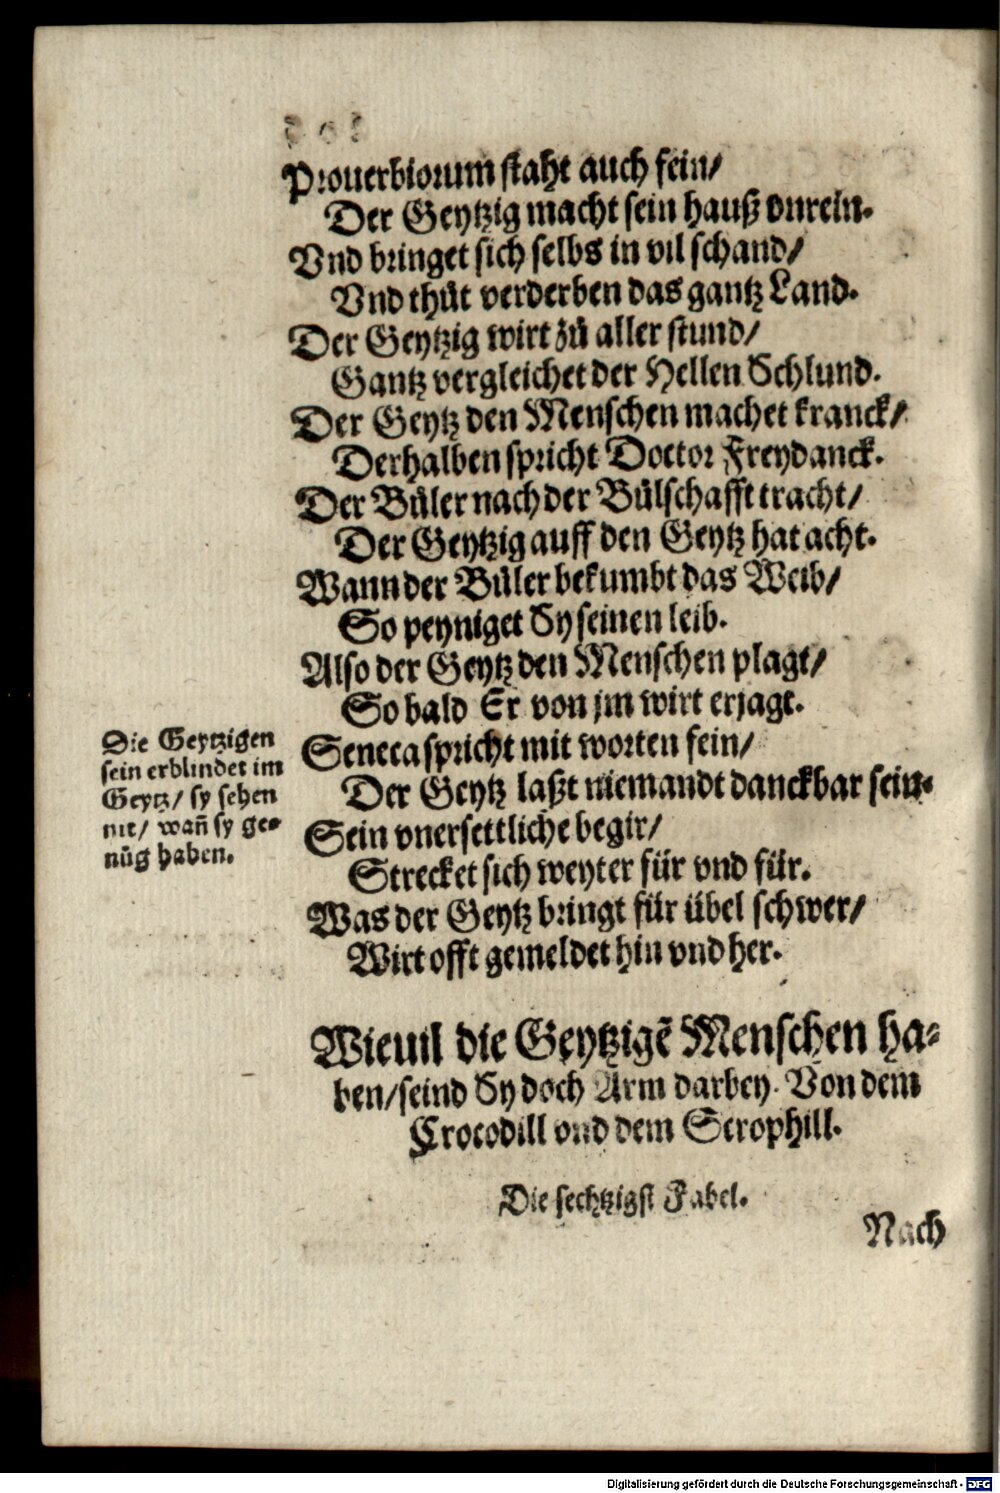 Prouerbiorum staht auch fein/
Der Geytzig macht sein hauß vnrein.
Vnd bringet sich selbs in vil schand/
Vnd thůt verderben das gantz Land.
Der Geytzig wirt zů aller stund/
Gantz vergleichet der Hellen Schlund.
Der Geytz den Menschen machet kranck/
Derhalben spricht Doctor Freydanck.
Der Bůler nach der Bůlschafft tracht/
Der Geytzig auff den Geytz hat acht.
Wann der Bůler bekumbt das Weib/
So peyniget Sy seinen leib.
Also der Geytz den Menschen plagt/
So bald Er von jm wirt erjagt.
Seneca spricht mit worten fein/
Der Geytz laßt niemandt danckbar sein.
Sein vnersettliche begir/
Strecket sich weyter für vnd für.
Was der Geytz bringt für übel schwer/
Wirt offt gemeldet hin vnd her.
Die Geytzigen
sein erblindet im
Geytz/ sy sehen
nit/ wañ sy ge-
nůg haben.
Wieuil die Geytzigẽ Menschen ha-
ben/seind Sy doch Arm darbey. Von dem
Crocodill vnd dem Scrophill.
Die sechtzigst Fabel.
Nach
Digitalisierung gefördert durch die Deutsche Forschungsgemeinschaft - DFG